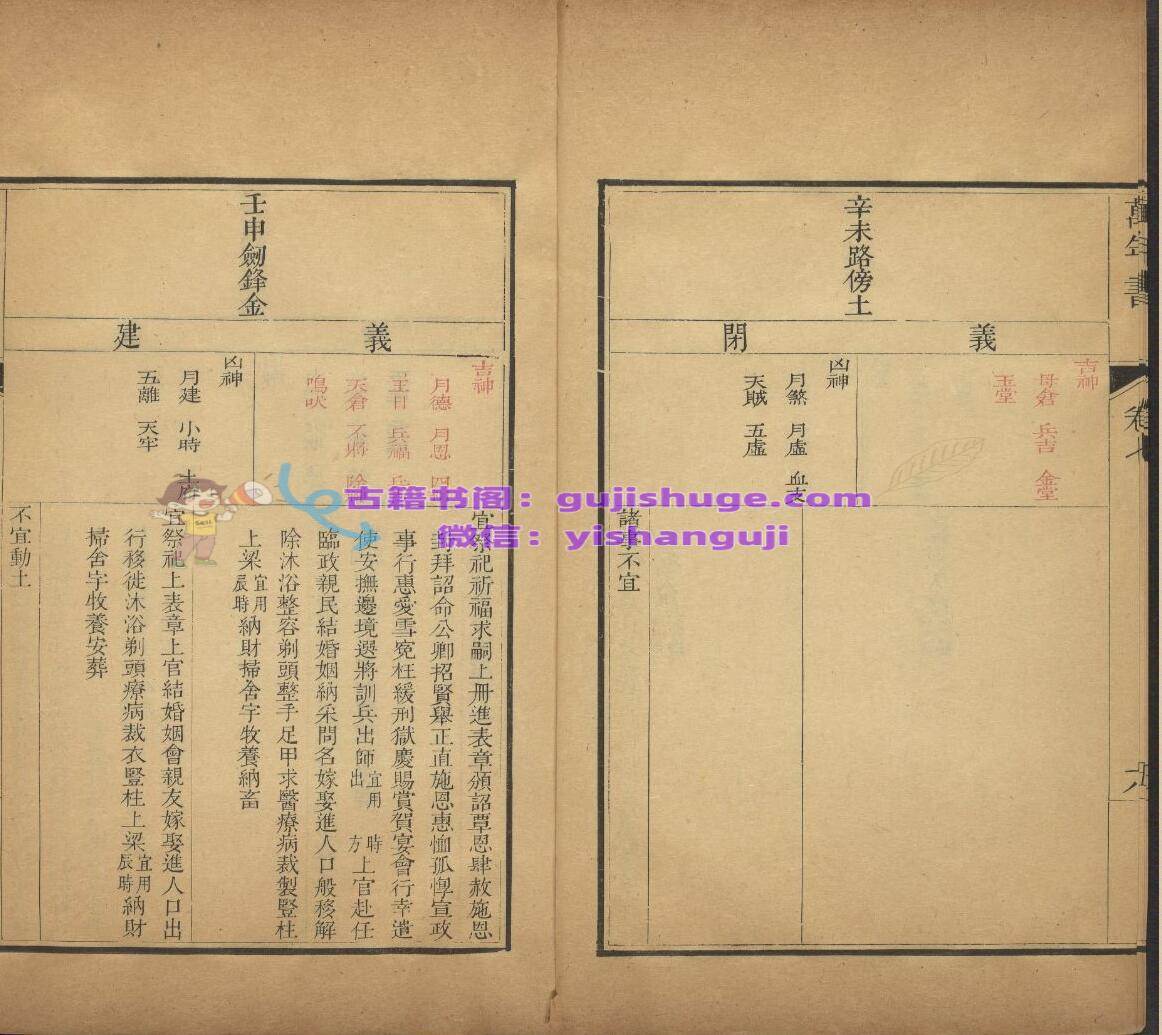 萬年書
卷七
辛未路傍土
義
閉
吉神
母倉 兵吉 金堂
玉堂
凶神
月煞 月虛 血支
天賊 五虛
諸事不宜
壬申劒鋒金
義
建
吉神
月德 月恩 四
王日 兵福
天倉 不將 除
鳴吠
凶神
月建 小時 土府
五離 天牢
宜祭祀祈福求嗣上冊進表章頒詔覃恩肆赦施恩
封拜詔命公卿招賢舉正直施恩惠恤孤惸宣政
事行惠愛雪冤枉緩刑獄慶賜賞賀宴會行幸遣
使安撫邊境選將訓兵出師宜用 時出 方上官赴任
臨政親民結婚姻納采問名嫁娶進人口般移解
除沐浴整容剃頭整手足甲求醫療病裁製豎柱
上梁宜用辰時納財掃舍宇牧養納畜
宜祭祀上表章上官結婚姻會親友嫁娶進人口出
行移徙沐浴剃頭療病裁衣豎柱上梁宜用辰時納財
掃舍宇牧養安葬
不宜動土
古籍书阁：gujishuge.com
微信：yishanguji